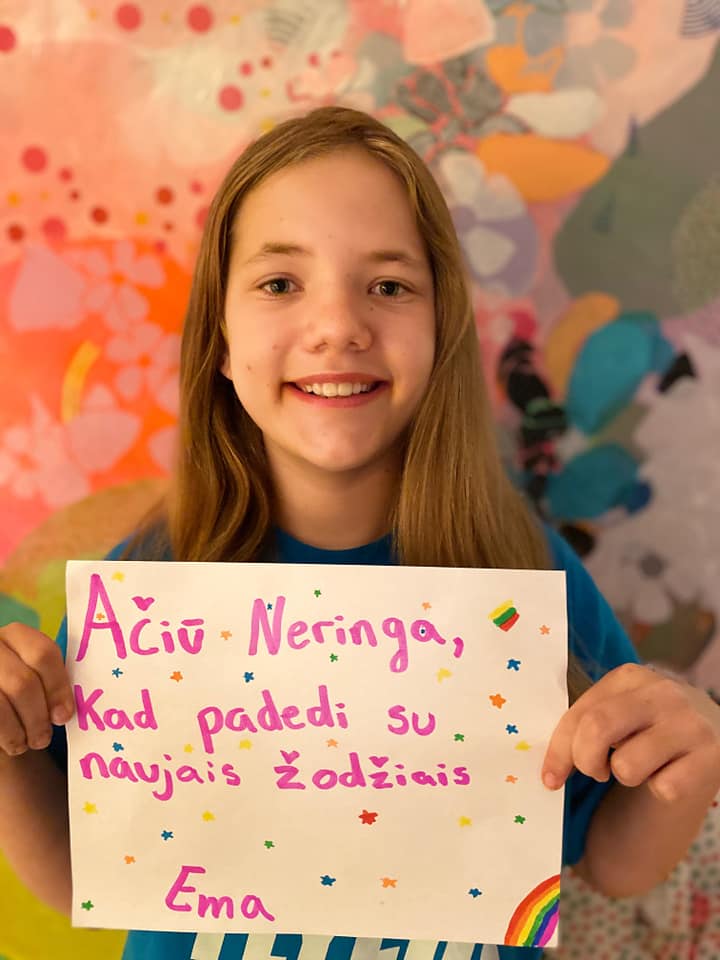 Ačiū Neringa,
Kad padedi su
naujais žodžiais
Ema